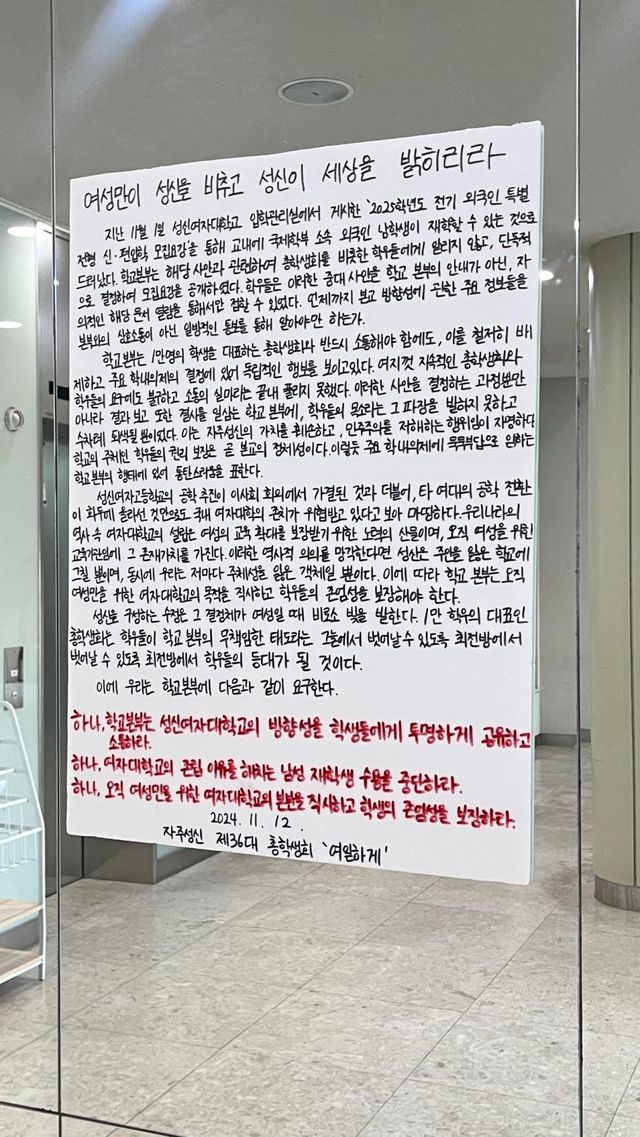 여성만이 성신을 비추고 성신이 세상을 밝히리라
지난 11월 1일 성신여자대학교 입학관리실에서 게시한 '2025학년도 전기 외국인 특별
전형 신·편입학 모집요강'을 통해 교내에 국제학부 소속 외국인 남학생이 재학할 수 있는 것으로
드러났다. 학교본부는 해당 사안과 관련하여 총학생회를 비롯한 학우들에게 알리지 않고, 단독적
으로 결정하여 모집요강을 공개하였다. 학우들은 이러한 중대 사안을 학교 본부의 안내가 아닌, 자
의적인 해당 문서 열람을 통해서만 접할 수 있었다. 언제까지 본교 방향성에 관한 주요 정보들을
본부와의 상호소통이 아닌 일방적인 통보를 통해 알아야만 하는가.
학교본부는 1만여의 학생을 대표하는 총학생회와 반드시 소통해야 함에도, 이를 철저히 배
제하고 주요 학내의제의 결정에 있어 독립적인 행보를 보이고있다. 여지껏 지속적인 총학생회와
학우들의 요구에도 불구하고 소통의 실마리는 끝내 풀리지 못했다. 이러한 사안을 결정하는 과정뿐만
아니라 결과 보고 또한 결시를 일삼는 학교 본부에, 학우들의 목소리는 그 파장을 발하지 못하고
수차례 퇴색될 뿐이었다. 이는 자주성신의 가치를 훼손하고, 민주주의를 저해하는 행위임이 자명하다
학교의 주체인 학우들의 권리 보장은 곧 본교의 정체성이다. 이렇듯 주요 학내의제에 묵묵부답으로 임하는
학교본부의 행태에 있어 통탄스러움을 표한다.
성신여자고등학교의 공학 추진이 이사회 회의에서 가결된 것과 더불어, 타 여대의 공학 전환
이 화두에 올라선 것만으로도 국내 여자대학의 존치가 위협받고 있다고 보아 마땅하다. 우리나라의
역사 속 여자대학교의 설립은 여성의 교육 확대를 보장받기 위한 노력의 산물이며, 오직 여성을 위한
교육기관임에 그 존재가치를 가진다. 이러한 역사적 의의를 망각한다면 성신은 주인을 잃은 학교에
그칠 뿐이며, 동시에 우리는 저마다 주체성을 잃은 객체일 뿐이다. 이에 따라 학교 본부는 오직
여성만을 위한 여자대학교의 목적을 직시하고 학우들의 존엄성을 보장해야 한다.
성신을 구성하는 수정은 그 결정체가 여성일 때 비로소 빛을 발한다. 1만 학우의 대표인
총학생회는 학우들이 학교 본부의 무책임한 태도라는 그늘에서 벗어날 수 있도록 최전방에서
벗어날 수 있도록 최전방에서 학우들의 등대가 될 것이다.
이에 우리는 학교본부에 다음과 같이 요구한다.
하나, 학교본부는 성신여자대학교의 방향성을 학생들에게 투명하게 공유하고
소통하라.
하나, 여자대학교의 존립 이유를 해치는 남성 재학생 수용을 중단하라.
하나, 오직 여성만을 위한 여자대학교의 본분을 직시하고 학생의 존엄성을 보장하라.
2024. 11. 12.
자주성신 제36대 총학생회 '여일하게'